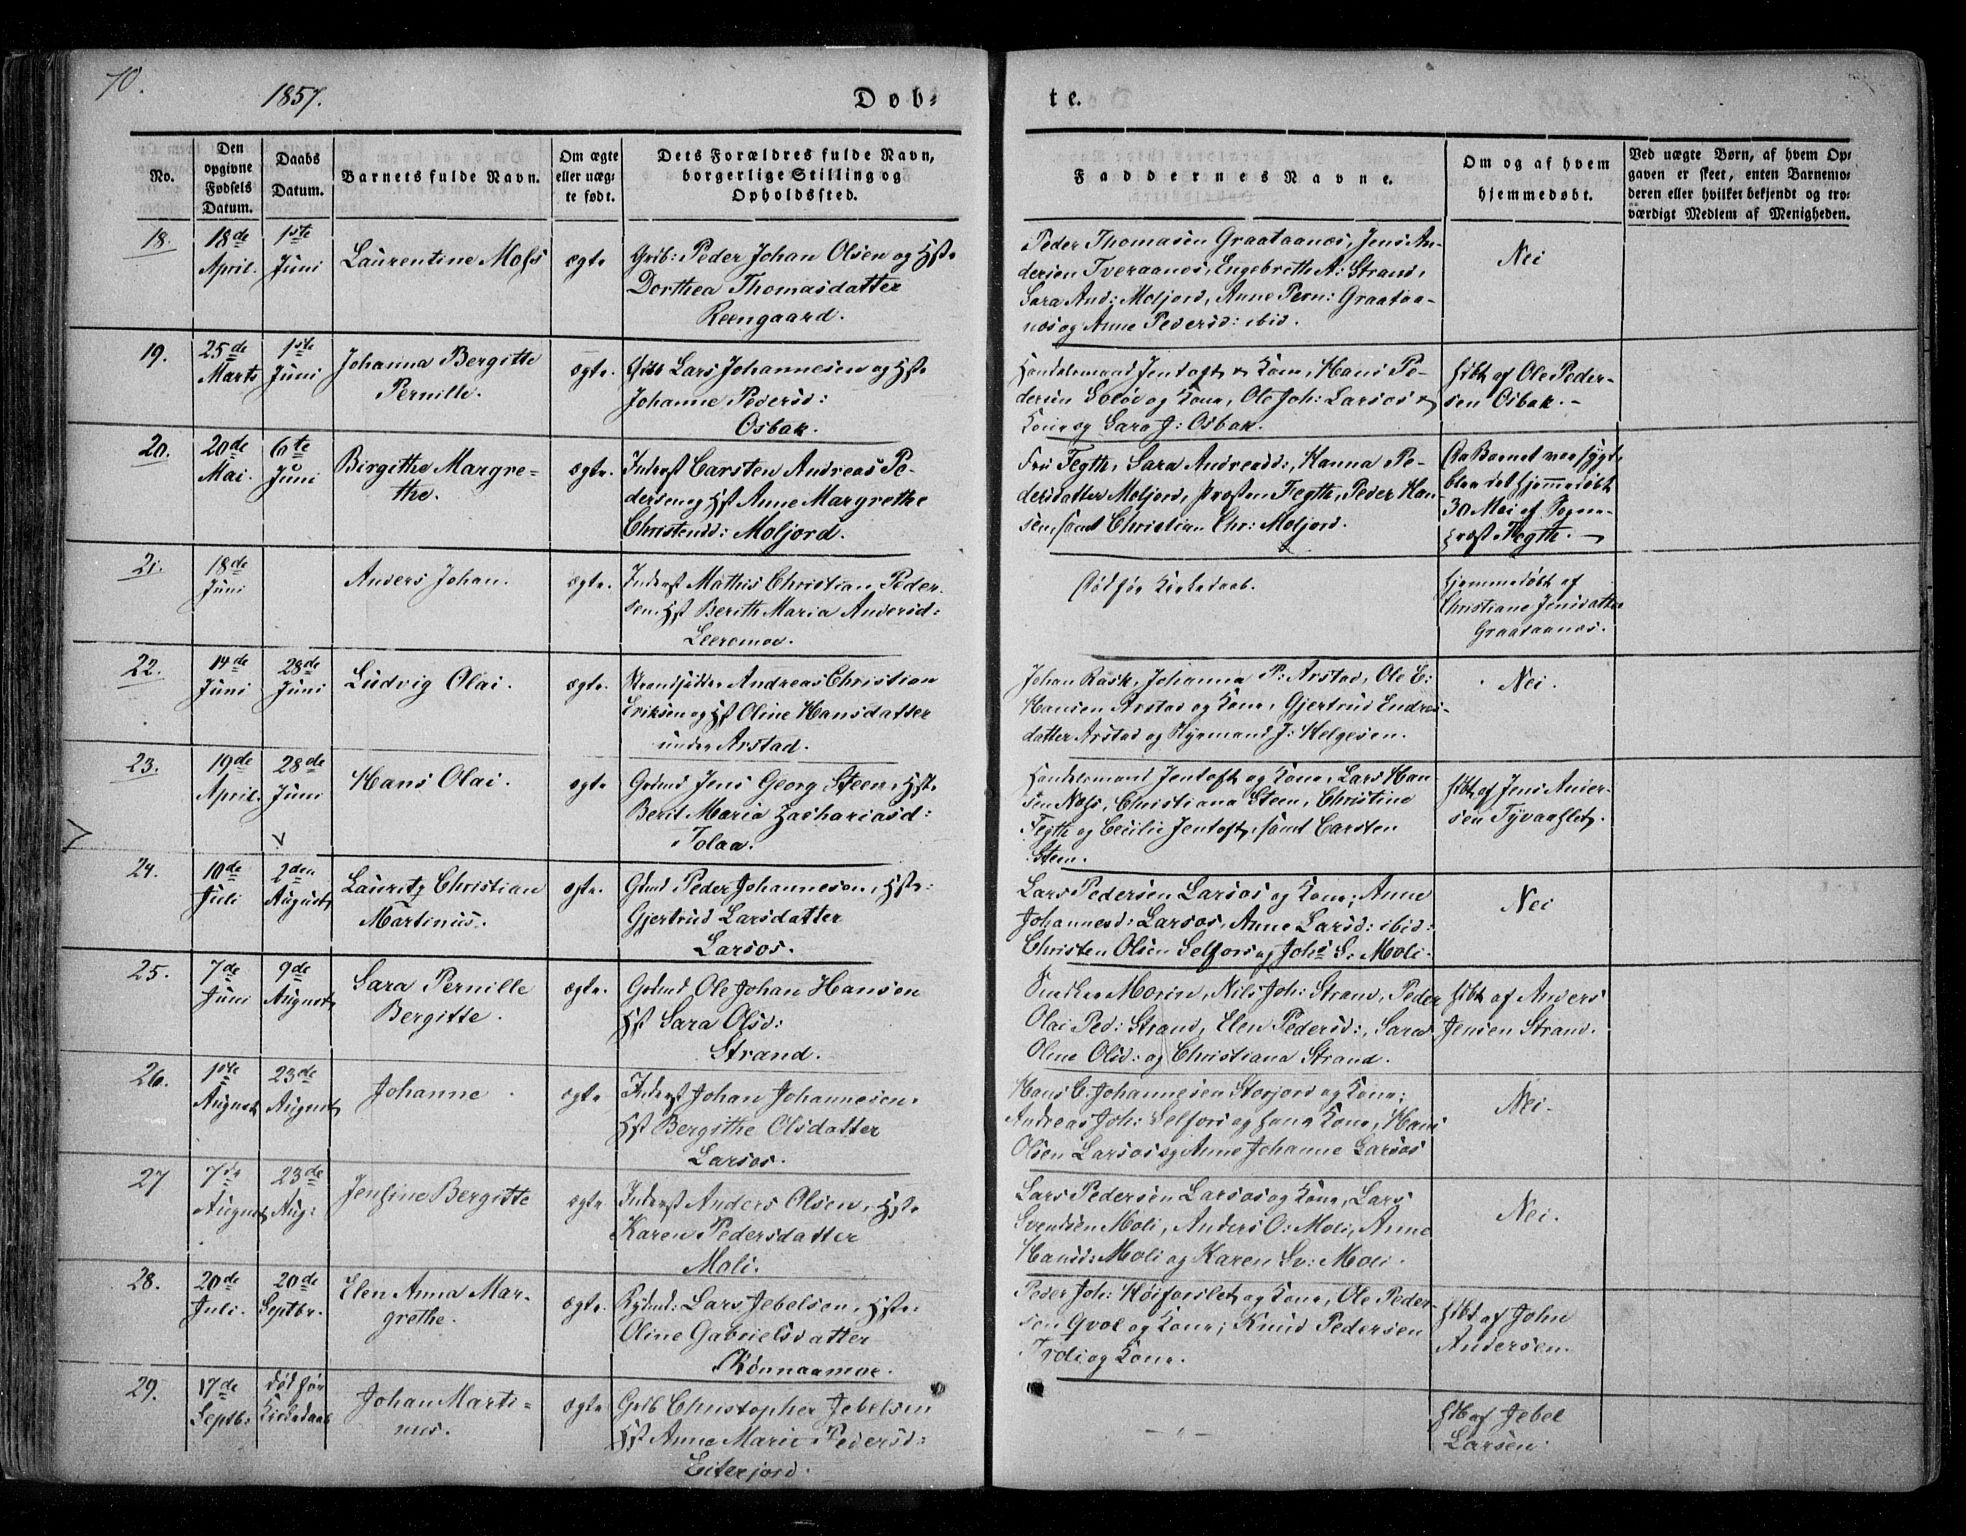 70.
1857.
Døb-
te.
No.
Den opgivne Fødsels Datum.
Daabs Datum.
Barnets fulde Navn.
Om ægte eller uægte født.
Dets Forældres fulde Navn, borgerlige Stilling og Opholdssted.
Faddernes Navne.
Om og af hvem hjemmedøbt.
Ved uægte Børn, af hvem Opgaven er skeet, enten Barnemoderen eller hvilket bekjendt og troværdigt Medlem af Menigheden.
18.
18de April.
1ste Juni
Laurentine Mo
ægte
Grb: Peder Johan Olsen og Hst.
Dorthea Thomasdatter
Reengaard.
Peder Thomasen Graataanes, Jens An-
dersen Tveraanes, Engebreth A: Strand,
Sara And: Moljord, Anne Pern: Graataa-
nes og Anne Pedersd: ibid.
Nei
19.
25de Marts
1ste Juni
Johanna Bergitte
Pernille.
ægte.
Lars Johannesen og Hst.
Johanne Pedersd:
Osbak.
Handelsmand Jentoft & Kone, Hans Pe-
dersen Soløe og Kone, Ole Joh: Larsos &
Kone og Sara J: Osbak.
Hdbt af Ole Peder-
sen Osbak.-
20.
20de Mai.
6te Juni
Birgithe Margre-
the.
ægte.
Inderst Carsten Andreas Pe-
dersen og Hst Anne Margrethe
Christensd: Moljord.
Fru Fegth, Sara Andreasd:, Hanna Pe-
dersdatter Moljord, Provsten Fegth, Peder Han-
sen, samt Christian Chr: Moljord.
Da Barnet var sygt,
blev det hjemmedøbt
30 Mai af Sogne-
prost Fegth.
21.
18de Juni
Anders Johan.
ægte.
Inderst Mathis Christian Peder-
sen, Hst Berith Maria Andersd:
Leeremoe.
Død før Kirkedaab.
Hjemmedøbt af
Christiane Jensdatter
Graataanes.
22.
14de Juni
28de Juni
Ludvig Olai.
ægte.
Strandsidder Andreas Christian
Eriksen og Hst Oline Hansdatter
under Arstad.
Johan Rask, Johanna P: Arstad, Ole E:
Hansen Arstad og Kone, Gjertrud Endres-
datter Arstad og Styrmand J: Helgesen.
Nei.
23.
19de April.
28de Juni
Hans Olai.
ægte
Grdmd Jens Georg Steen, Hst.
Berit Maria Zachariasd:
Tolaa.
Handelsmand Jentoft og Kone, Lars Han-
sen Næs, Christiana Steen, Christine
Fegth og Cecilie Jentoft, samt Carsten
Steen.
Hdbt af Jens Ander-
sen Tyvaaflet.
24.
10de Juli
2den August
Lauritz Christian
Martinus.
ægte.
Grdmd Peder Johannesen, Hst:
Gjertrud Larsdatter
Larsos.
Lars Pedersen Larsos og Kone; Anne
Johannesd: Larsos, Anne Larsd: ibid:
Christen Olsen Selfors og Johs S. Moli.
Nei
25.
7de Juni
9de August
Sara Pernille
Bergitte.
ægte.
Grdmd Ole Johan Hansen
Hst Sara Olsd:
Strand.
Morin, Nils Joh: Strand, Peder
Olai Ped: Strand, Elen Pedersd:, Sara
Oline Olsd: og Christiana Strand.
Hdbt af Anders
Jensen Strand.
26.
1ste August
23de August
Johanne
ægte
Inderst Johan Johannesen.
Hst Bergithe Olsdatter
Larsos.
Hans C. Johannesen Storjord og Kone;
Andreas Joh: Selfors og hans Kone, Hans
Olsen Larsos og Anne Johanne Larsos
Nei.
27
7de August
23de Aug:
Jensine Bergitte
ægte
Inderst Anders Olsen, Hst.
Karen Pedersdatter
Moli.
Lars Pedersen Larsos og Kone, Lars
Svendsen Moli, Anders O: Moli, Anne
Hansd: Moli og Karen Sv: Moli.
Nei.
28.
20de Juli.
20de Septbr.
Elen Anna Mar-
grethe.
ægte.
Rydmd: Lars Jebelsen, Hst:
Oline Gabrielsdatter
Rønnaamoe.
Peder Joh: Høiforslet og Kone, Ole Peder-
sen Qvol og Kone; Knud Pedersen
Troli og Kone.
Hdbt af John
Andersen.
29.
17de Septb:
død før Kirkedaab
Johan Marti-
nus.
ægte
Grb Christopher Jebelsen
Hst Anne Marie Pedersd:
Eiterjord.
Hdb af Jebel
Larsen.